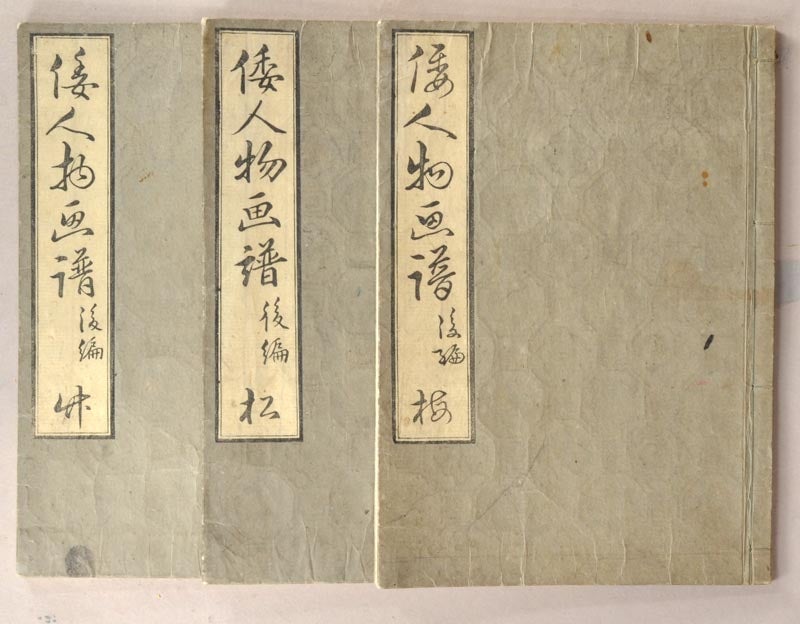 倭人物画譜
後編
梅
倭人物画譜
後編
松
倭人物画譜
後編
竹